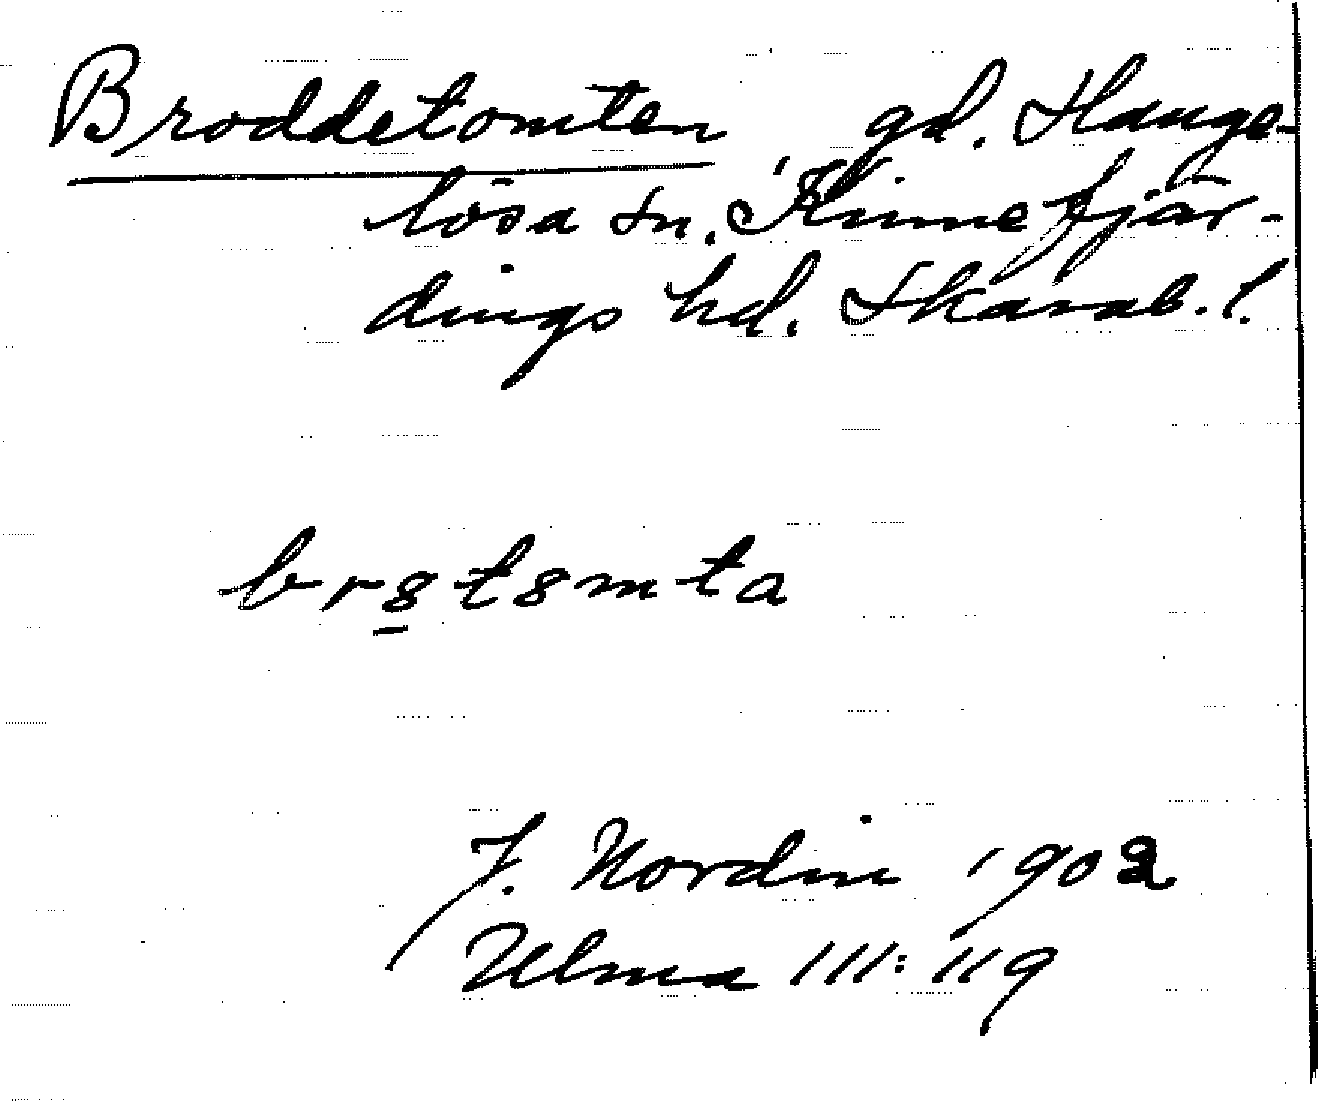 Broddetomten gd. Hange-
lösa sn. Kinnefjär-
dings hd. Skarab. l.
br8t8mta
F. Nordin 1902
Ulma 111:119